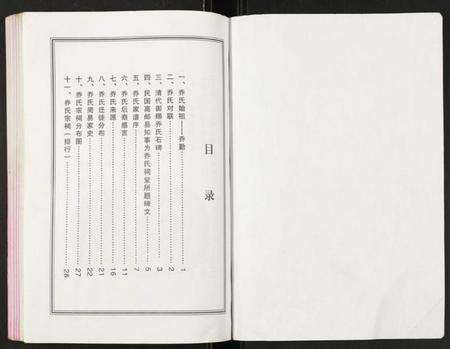 目录
一、乔氏始祖——乔勤……1
二、乔氏对联……2
三、清代御赐乔氏石碑……3
四、民国高邮县知事为乔氏祠堂所题碑文……5
五、乔氏家谱序……7
六、乔氏后裔感言……11
七、乔氏来源……16
八、乔氏迁徙分布……21
九、乔氏周易家史……22
十、乔氏宗祠分布图……27
十一、乔氏宗祠（排行）……28